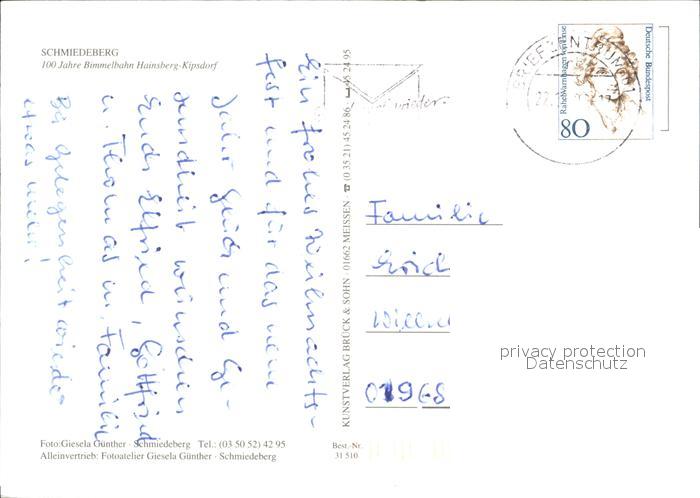 SCHMIEDEBERG
100 Jahre Bimmelbahn Hainsberg-Kipsdorf
Ein frohes Weihnachts-
fest und für das neue
Jahr Glück und Ge-
sundheit wünschen
Euch Elfried, Gottfried
u. Thomas m. Familie
Bei Gelegenheit wieder
etwas mehr!
KUNSTVERLAG BRÜCK & SOHN · 01662 MEISSEN · ☎ (0 35 21) 45 24 86 · 45 24 95
wieder.
BRIEFZENTRUM
Deutsche Bundespost
Rahel Varnhagen von Ense
80
Familie
Erich
01968
privacy protection
Datenschutz
Foto: Giesela Günther · Schmiedeberg Tel.: (03 50 52) 42 95
Alleinvertrieb: Fotoatelier Giesela Günther · Schmiedeberg
Best.-Nr.
31 510